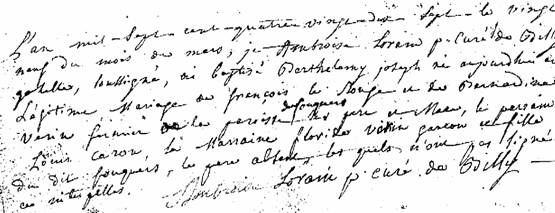 L'an mil-sept-cent-quatre vingt-dix-sept-le vingt
neuf du mois de mars, je Ambroise Loram p. curé de Billy
soussigné, ai baptisé Barthelamy joseph né aujourdhui
Légitime Mariage de françois le Rouge et de Bernardine
Verin fermier de la paroisse fouquers ses pere et Mere, le parrain
Louis Caron, la Marraine floride Verin garçon et fille
du dit fouquers, le pere absent, les quels n'ont pas signé
ce interpellés.
Ambroise Loram p. curé de Billy